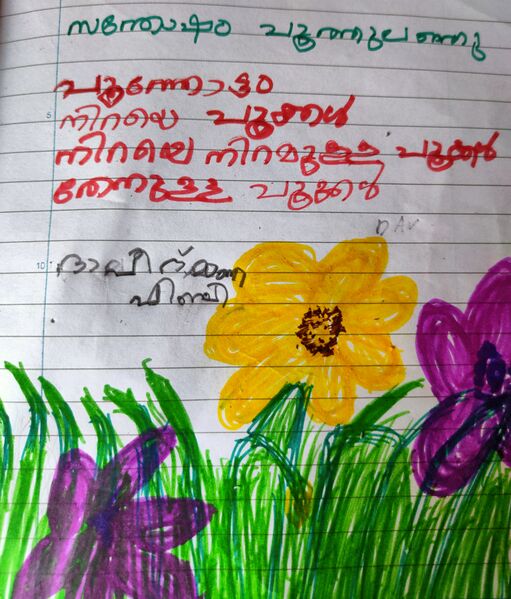 സന്തോഷം പൂത്തുലഞ്ഞു
പൂന്തോട്ടം
നിറയെ പൂക്കൾ
നിറയെ നിറമുള്ള പൂക്കൾ
തേനുള്ള പൂക്കൾ
DAV
5
10